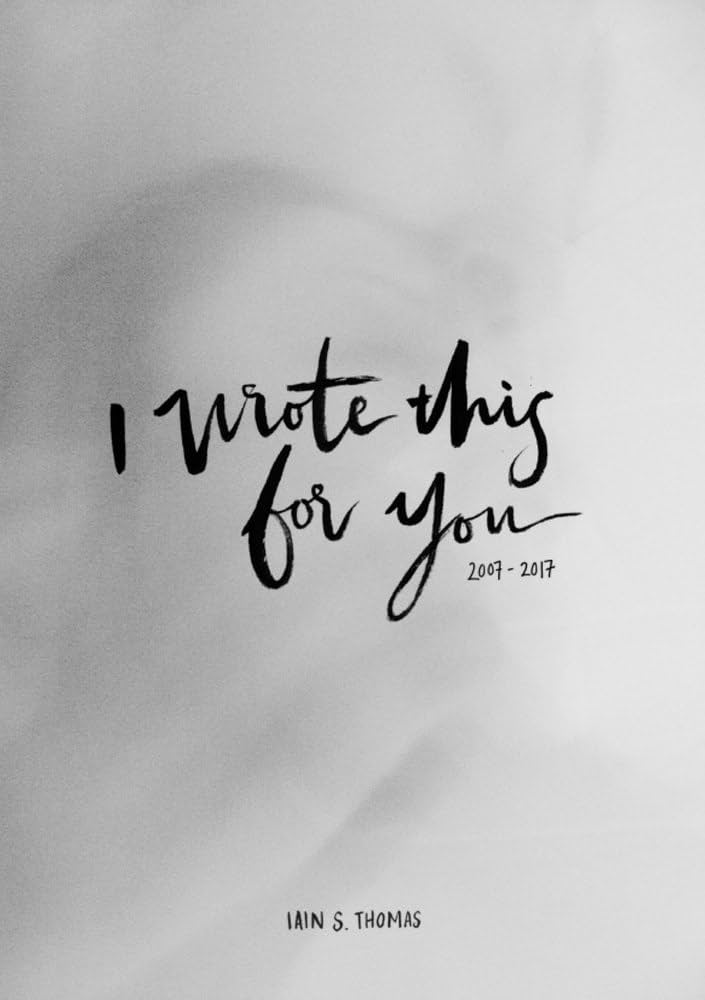 I wrote this
for you
2007-2017
IAIN S. THOMAS